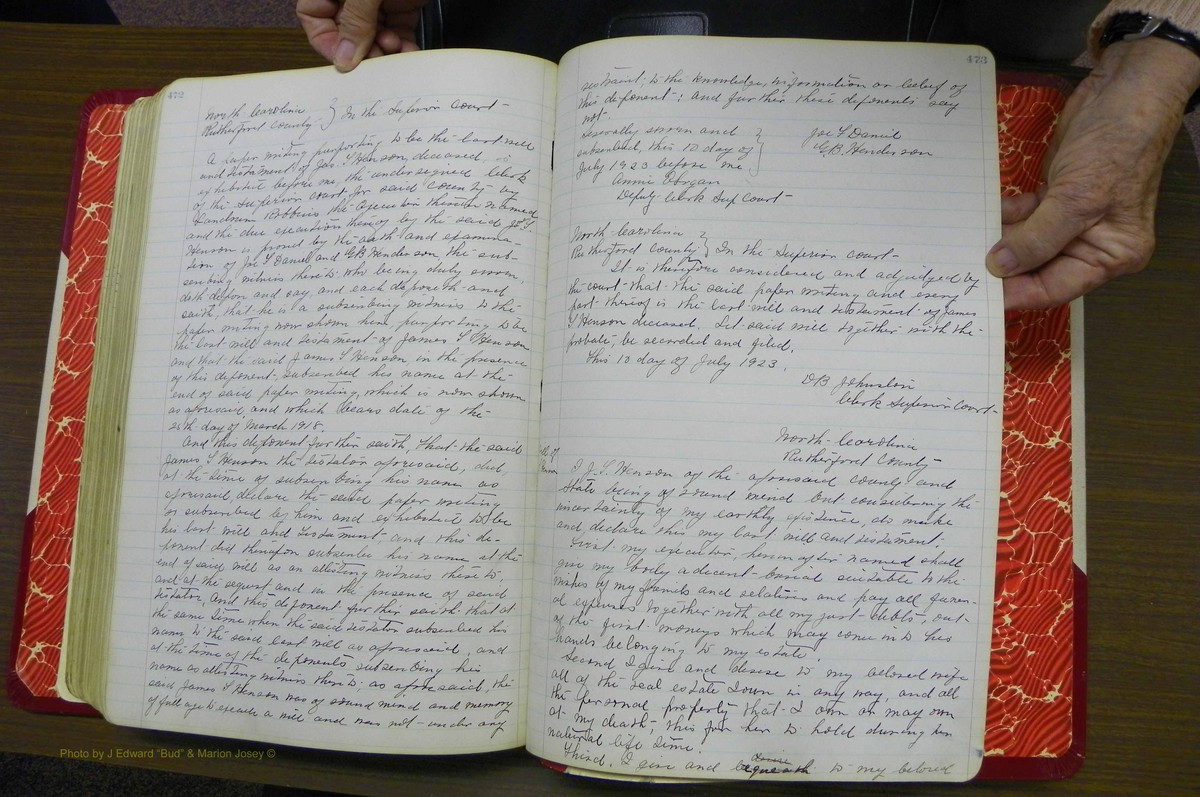 472
North Carolina
Rutherford County } In the Superior Court
A paper writing purporting to be the last will
and testament of Jas. S Henson, deceased is
exhibited before me, the undersigned Clerk
of the Superior Court for said County by
the Executor therein named
and the due execution thereof by the said Jas S
Henson is proved by the oath and examina-
tion of Joe S Daniel and G.B. Henderson, the sub-
scribing witness thereto. Who being duly sworn,
doth depon and say, and each deposeth and
saith, that he is a subscribing witness to the
paper writing now shown him, purporting to be
the last will and testament of James S Henson
and that the said James S Henson in the presence
of this deponent, subscribed his name at the
end of said paper writing, which is now shown
as aforesaid and which bears date of the
day of March 1918.
And this deponent further saith, that the said
James S Henson the testator aforesaid, did
at the time of subscribing his name as
aforesaid, declare the said paper writing
so subscribed by him and exhibited to be
his last will and testament and this de-
ponent did thereupon subscribe his name at the
end of said will as an attesting witness thereto,
and at the request and in the presence of said
testator, and this deponent further saith that at
the same time when the said testator subscribed his
name to the said last will as aforesaid, and
at the time of the deponents subscribing his
name as attesting witness thereto, as aforesaid, the
said James S Henson was of sound mind and memory
of full age to execute a will and was not under any
473
restraint to the knowledge, information or belief of
this deponent; and further these deponents say
not.
Severally sworn and
subscribed, this 10 day of
July 1923 before me
Joe S Daniel
G.B. Henderson
Annie
Deputy Clerk Sup Court
North Carolina
Rutherford County } In the Superior court
It is therefore considered and adjudged by
the court that the said paper writing and every
part thereof is the last will and testament of James
S Henson deceased. Let said will together with the
probate, be recorded and filed.
This 10 day of July 1923.
Clerk Superior Court
North Carolina
Rutherford County
Will of
Henson
I J.S. Henson of the aforesaid county and
state being of sound mind but considering the
uncertainty of my earthly existence, do make
and declare this my last will and testament:
First. my executor, hereinafter named shall
give my body a decent burial suitable to the
wishes of my friends and relatives and pay all funer-
al expenses together with all my just debts, out
of the first moneys which may come into his
hands belonging to my estate.
Second I give and devise to my beloved wife
all of the real estate I own in any way, and all
the personal property that I own or may own
at my death, this for her to hold during her
natural life time.
Third. I give and bequeath devise to my beloved
Photo by J Edward "Bud" & Marion Josey ©